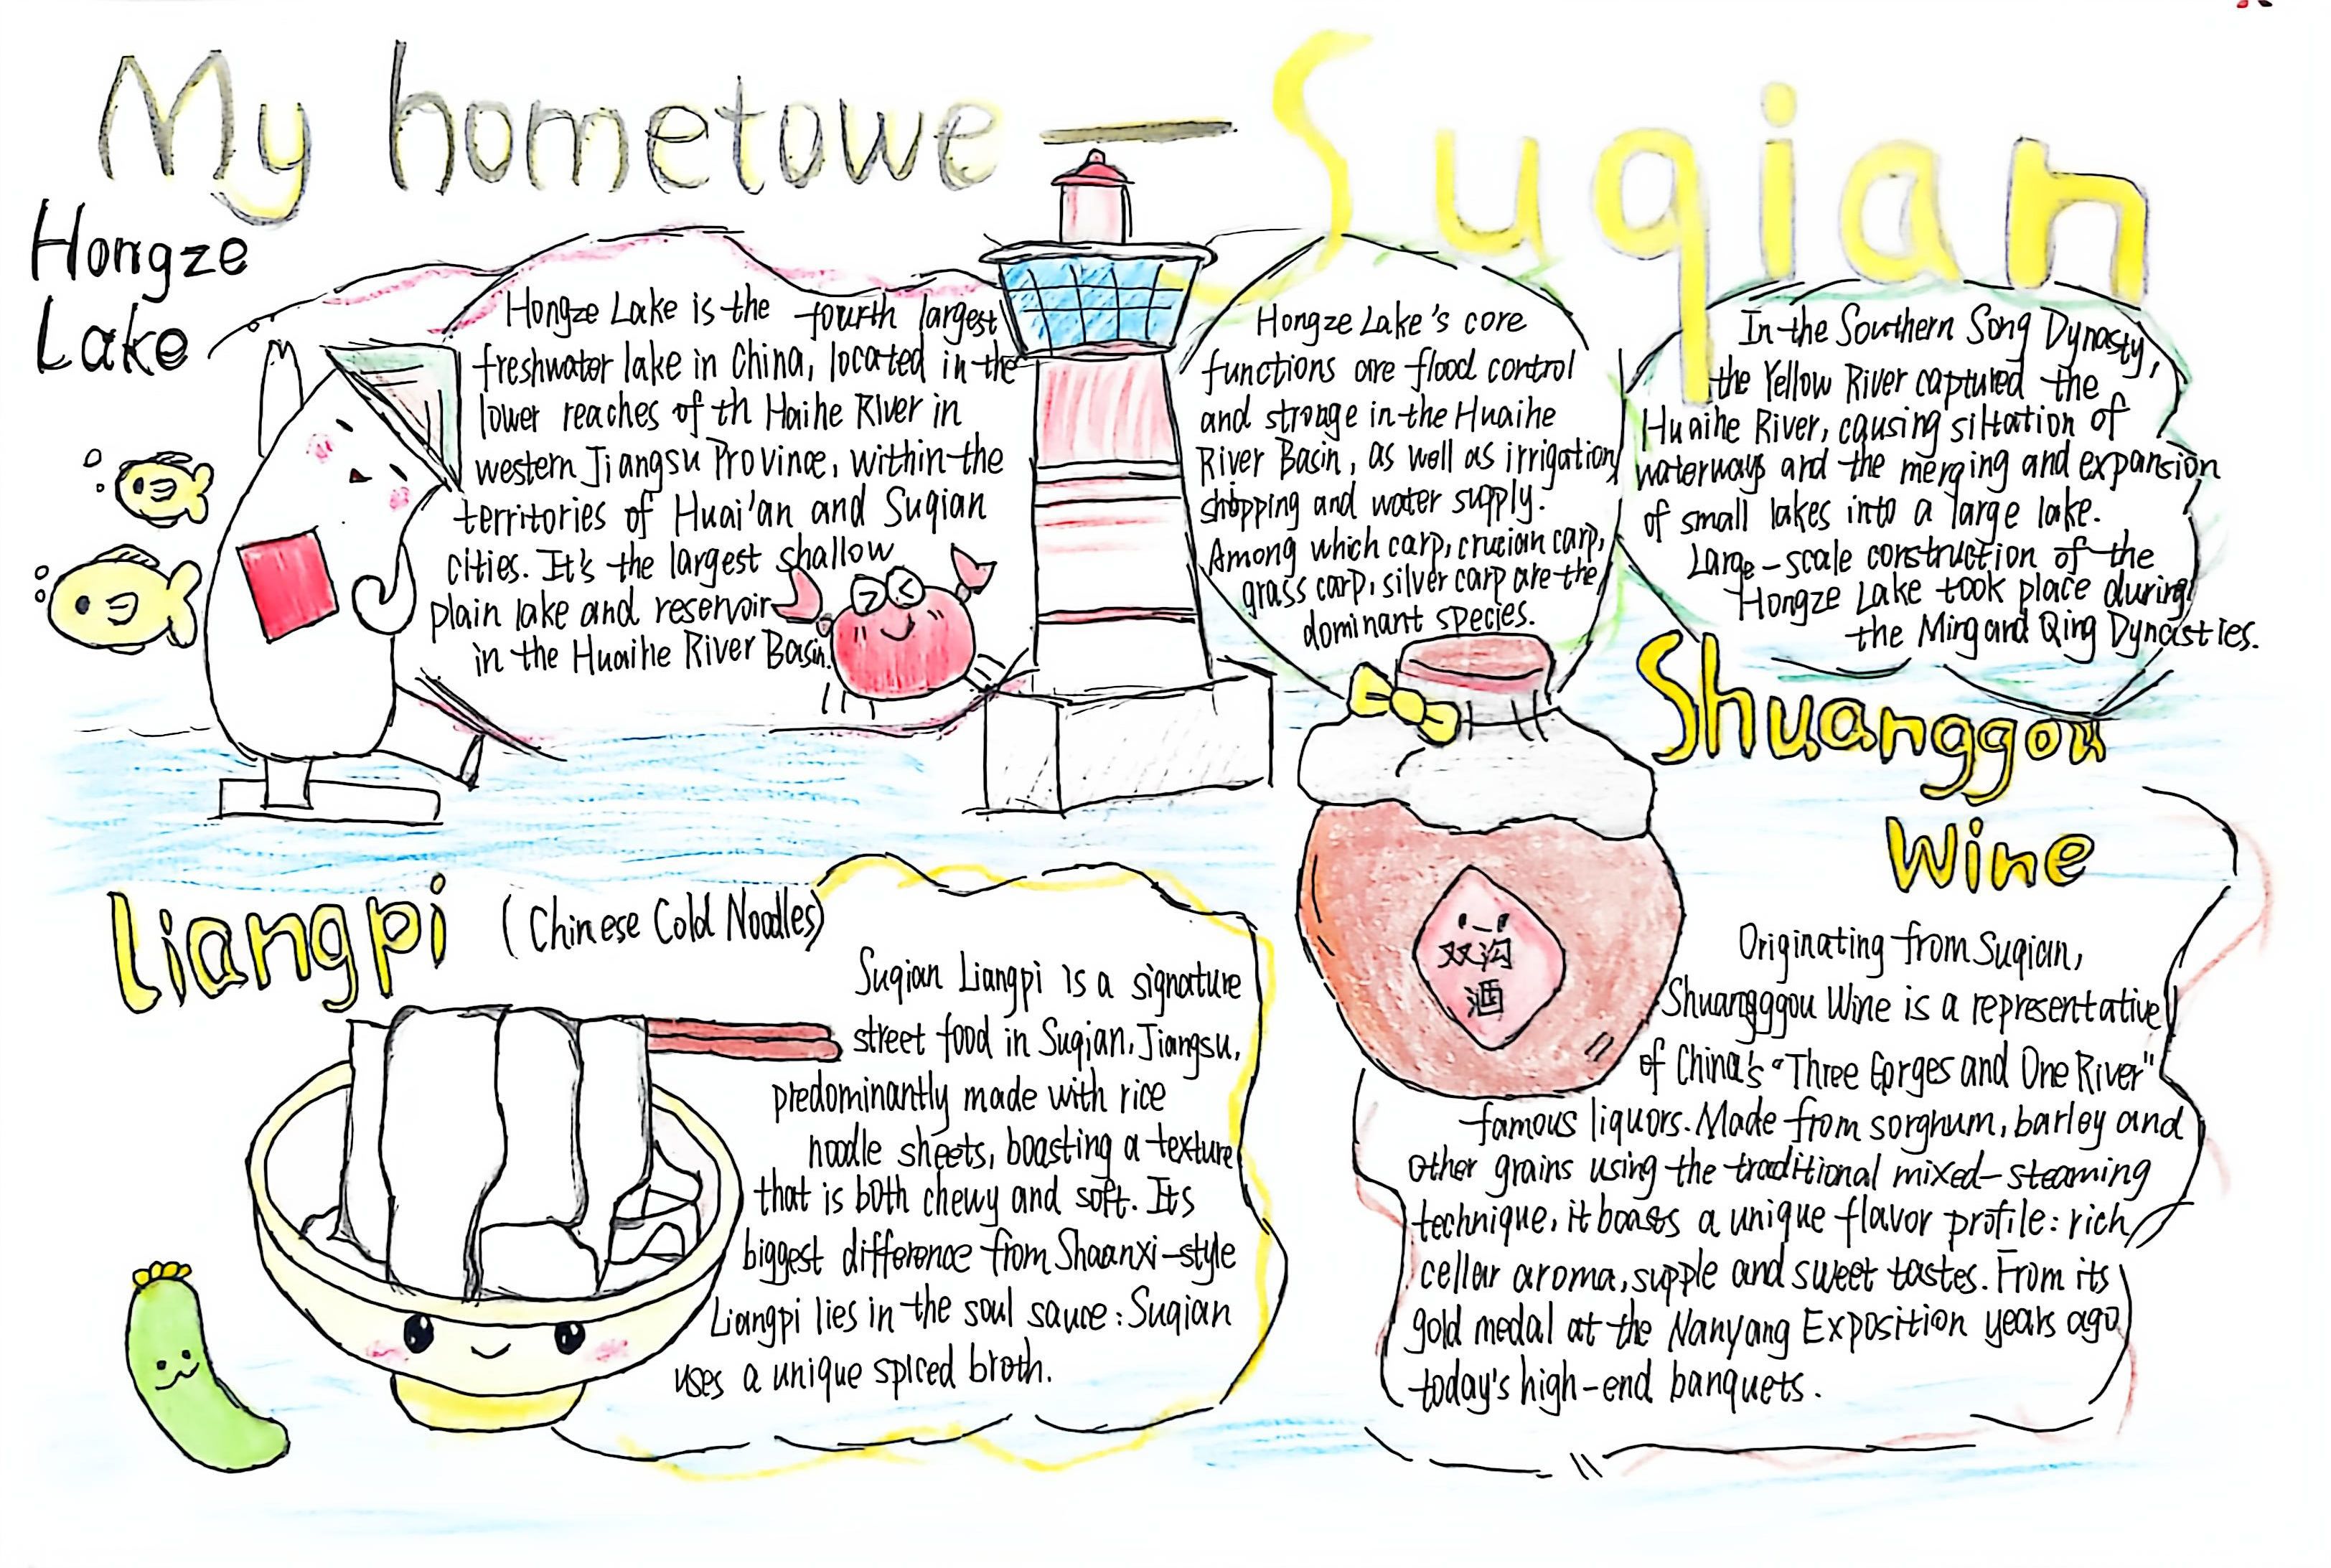 My hometowe — Suqian
Hongze
Lake
Hongze Lake is the fourth largest
freshwater lake in China, located in the
lower reaches of th Haihe River in
western Jiangsu Province, within the
territories of Huai'an and Suqian
cities. It's the largest shallow
plain lake and reservoir
in the Huaihe River Basin.
Hongze Lake's core
functions are flood control
and stroage in the Huaihe
River Basin, as well as irrigation,
shipping and water supply.
Among which carp, crucian carp,
grass carp, silver carp are the
dominant species.
In the Southern Song Dynasty,
the Yellow River captured the
Huaihe River, causing siltation of
waterways and the merging and expansion
of small lakes into a large lake.
Large-scale construction of the
Hongze Lake took place during
the Ming and Qing Dynasties.
Shuanggou
Wine
双沟
酒
Originating from Suqian,
Shuangggou Wine is a representative
of China's "Three Gorges and One River"
famous liquors. Made from sorghum, barley and
other grains using the traditional mixed-steaming
technique, it boasts a unique flavor profile: rich
cellar aroma, supple and sweet tastes. From its
gold medal at the Nanyang Exposition years ago
today's high-end banquets.
Liangpi (Chinese Cold Noodles)
Suqian Liangpi is a signature
street food in Suqian, Jiangsu,
predominantly made with rice
noodle sheets, boasting a texture
that is both chewy and soft. Its
biggest difference from Shaanxi-style
Liangpi lies in the soul sauce: Suqian
uses a unique spiced broth.